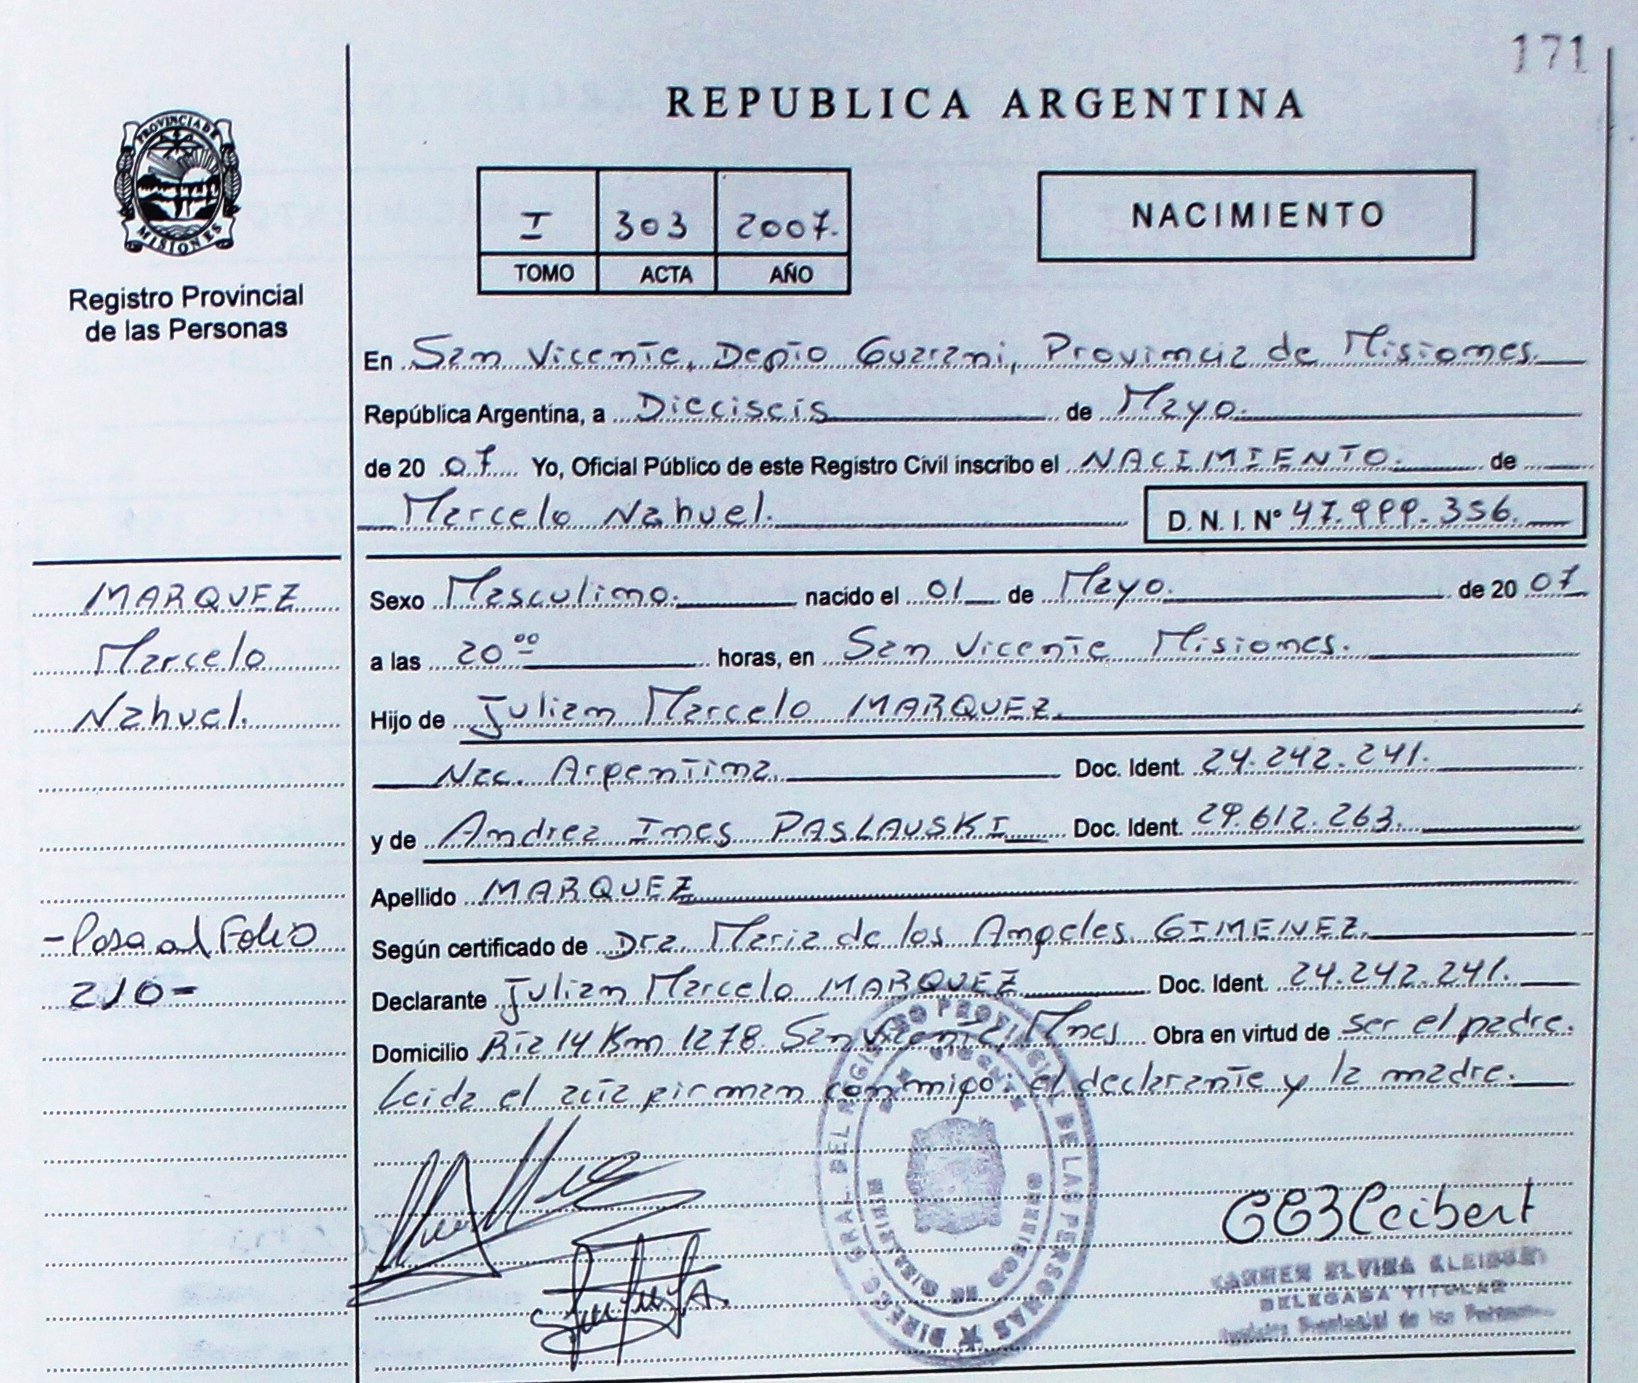 171
REPUBLICA ARGENTINA
PROVINCIA DE
MISIONES
Registro Provincial
de las Personas
I 303 2007.
TOMO ACTA AÑO
NACIMIENTO
En San Vicente, Depto Guarani, Provincia de Misiones.
República Argentina, a Dieciseis de Mayo.
de 20 07 Yo, Oficial Público de este Registro Civil inscribo el NACIMIENTO. de
Marcelo Nahuel. D. N. I. Nº 47.999.356.
MARQUEZ
Marcelo
Nahuel.
Sexo Masculino. nacido el 01 de Mayo. de 20 07
a las 20 00 horas, en San Vicente Misiones.
Hijo de Julian Marcelo MARQUEZ.
Nac. Argentina. Doc. Ident. 24.242.241.
y de Andrea Ines PASLAUSKI Doc. Ident. 29.612.263.
Apellido MARQUEZ
- Pasa al Folio
210 -
Según certificado de Dra. Maria de los Angeles GIMENEZ.
Declarante Julian Marcelo MARQUEZ Doc. Ident. 24.242.241.
Domicilio Rta 14 Km 1278 San Vicente, Mnes Obra en virtud de ser el padre.
Leida el acta firman conmigo: el declarante y la madre.
DIRECC. GRAL. DEL REGISTRO PROVINCIAL DE LAS PERSONAS
DELEGADA TITULAR